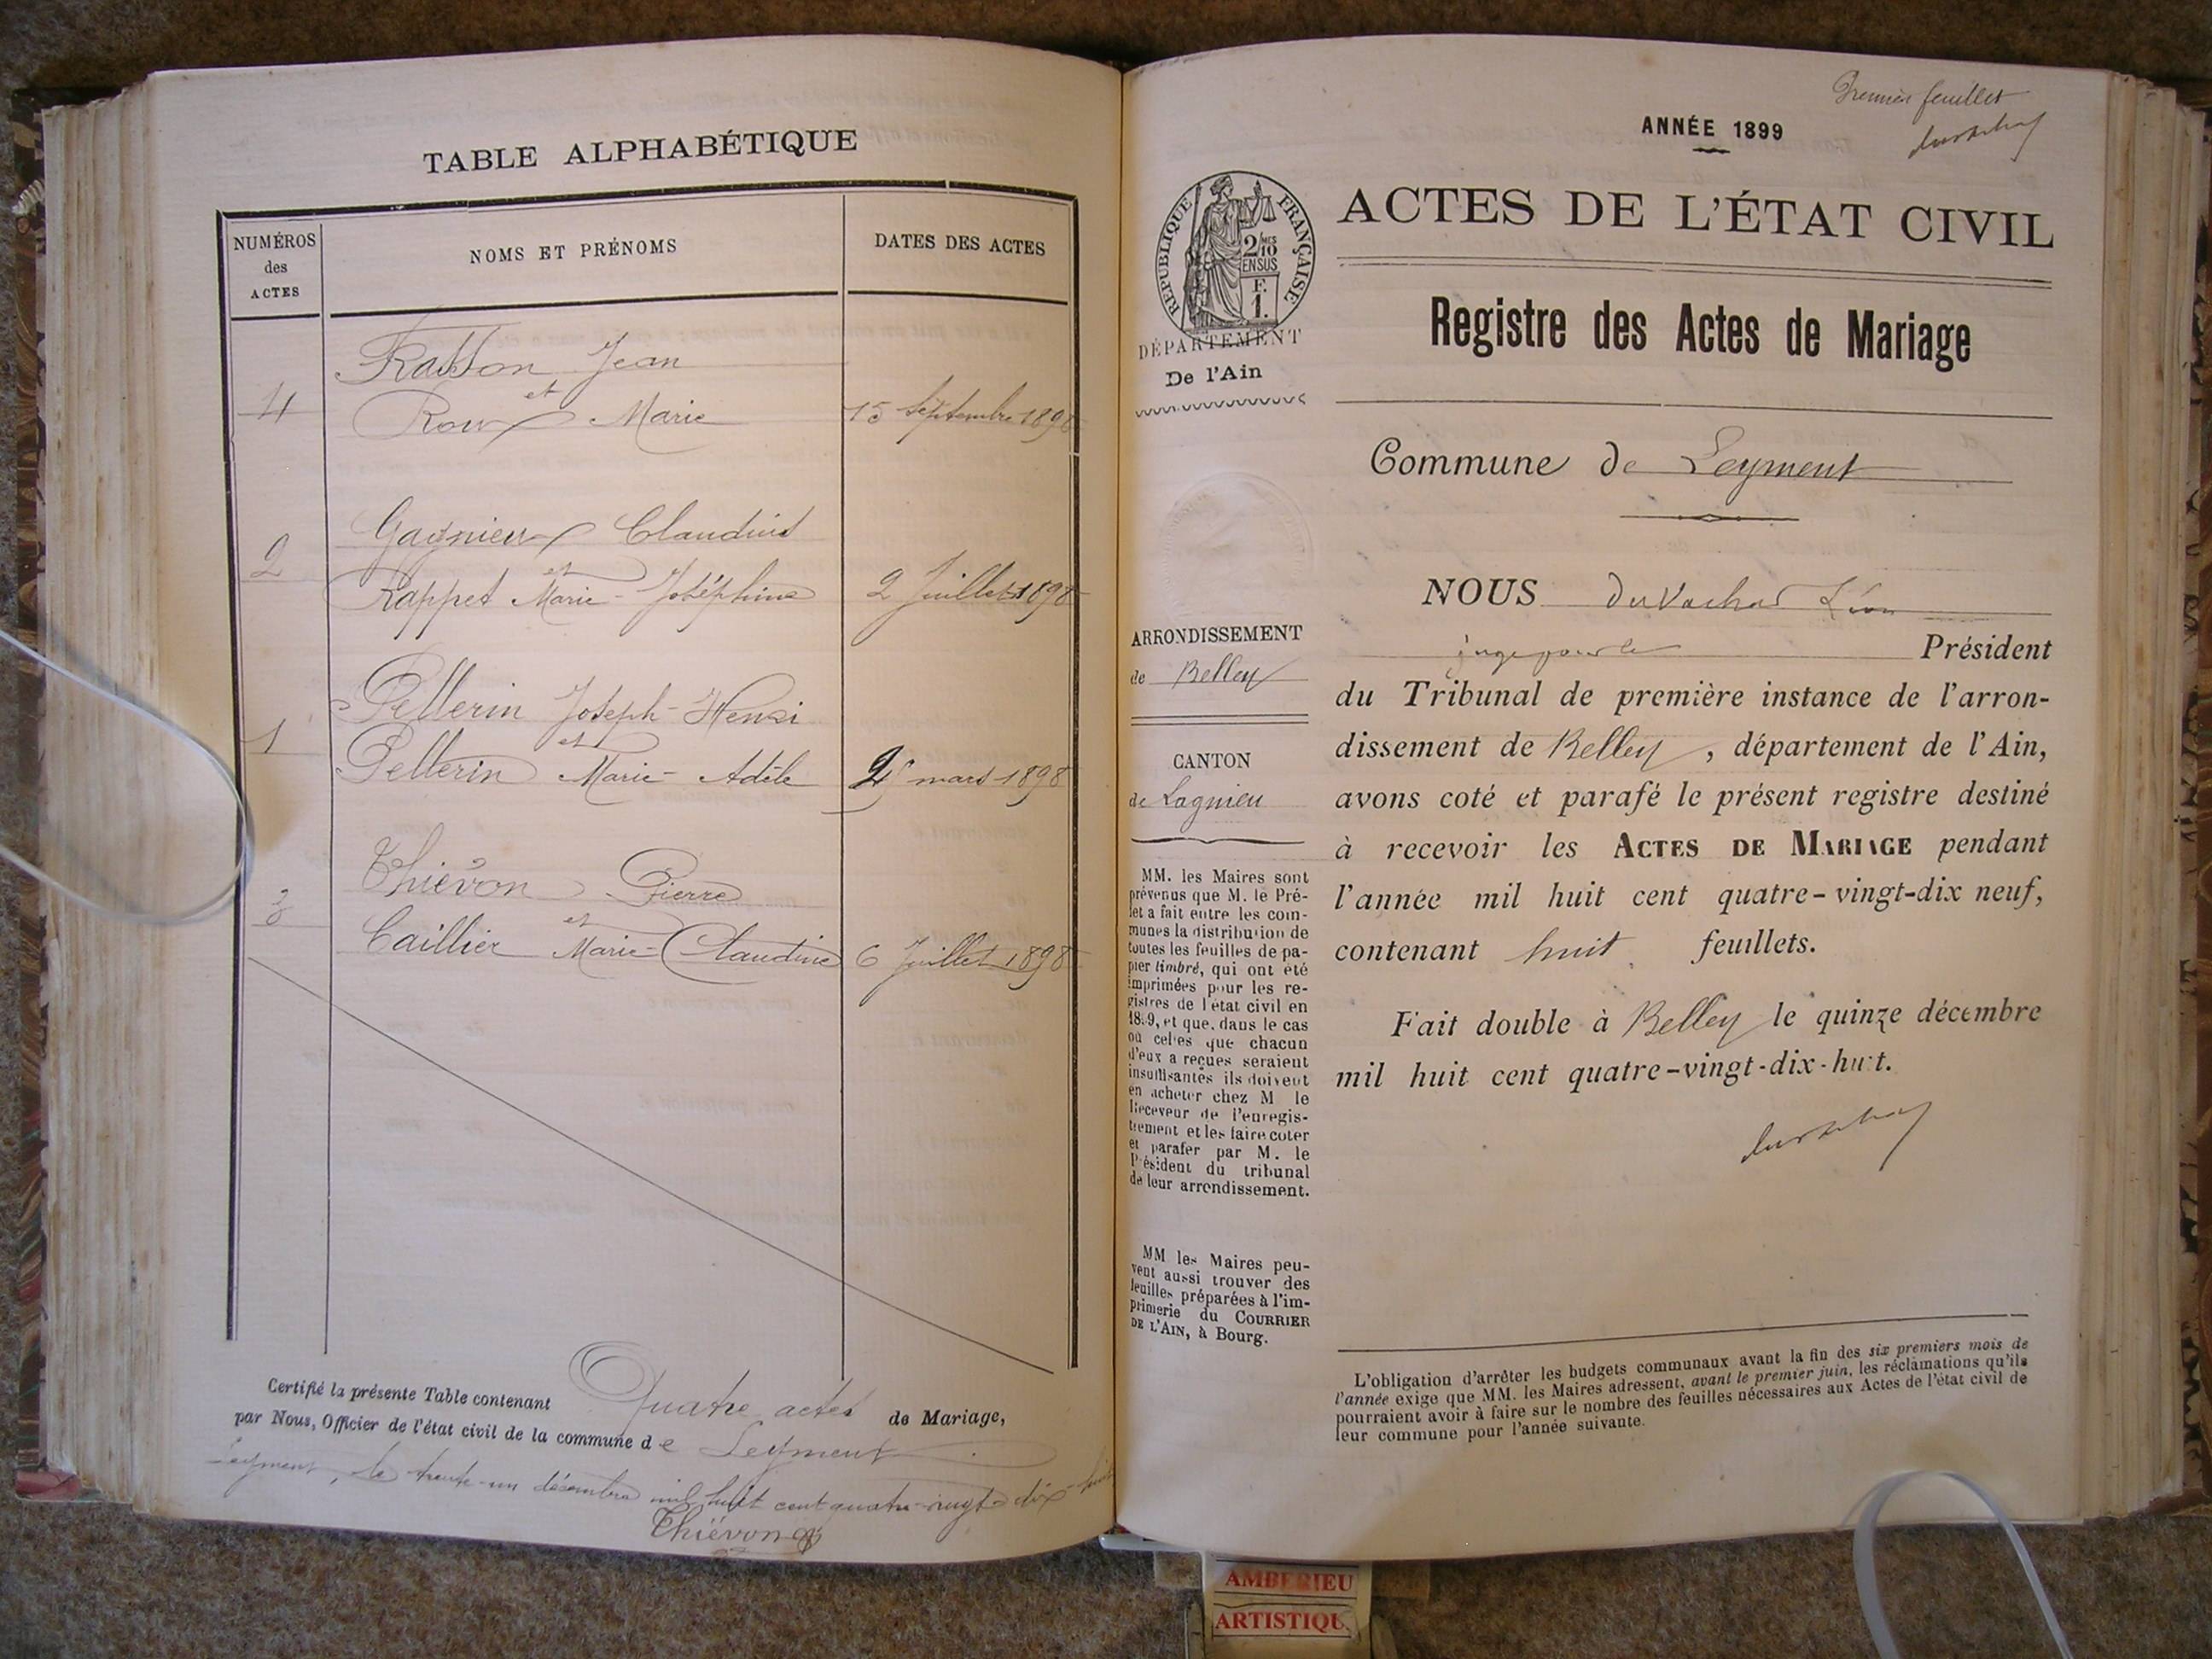 TABLE ALPHABÉTIQUE
NUMÉROS
des
ACTES
NOMS ET PRÉNOMS
DATES DES ACTES
Jean
et
4 Roux Marie 15 Septembre 1898
Gagnieux Claudius
et
2 Rappet Marie-Joséphine 2 Juillet 1898
Pellerin Joseph-Henri
et
1 Pellerin Marie-Adèle mars 1898
Thiévon Pierre
et
3 Caillier Marie-Claudine 6 Juillet 1898
Certifié la présente Table contenant Quatre actes de Mariage,
par Nous, Officier de l'état civil de la commune de Leyment
Leyment, le trente-un décembre mil huit cent quatre-vingt-dix-huit
Thiévon
Premier feuillet
ANNÉE 1899
RÉPUBLIQUE FRANÇAISE
2/10 MES
EN SUS
F.
1.
DÉPARTEMENT
De l'Ain
ACTES DE L'ÉTAT CIVIL
Registre des Actes de Mariage
Commune de Leyment
ARRONDISSEMENT
de Belley
CANTON
de Lagnieu
MM. les Maires sont
prévenus que M. le Pré-
fet a fait entre les com-
munes la distribution de
toutes les feuilles de pa-
pier timbré, qui ont été
imprimées pour les re-
gistres de l'état civil en
1899, et que, dans le cas
où celles que chacun
d'eux a reçues seraient
insuffisantes ils doivent
en acheter chez M le
Receveur de l'enregis-
trement et les faire coter
et parafer par M. le
Président du tribunal
de leur arrondissement.
MM les Maires peu-
vent aussi trouver des
feuilles préparées à l'im-
primerie du COURRIER
DE L'AIN, à Bourg.
NOUS Duvachat Léon
juge pour le Président
du Tribunal de première instance de l'arron-
dissement de Belley, département de l'Ain,
avons coté et parafé le présent registre destiné
à recevoir les ACTES DE MARIAGE pendant
l'année mil huit cent quatre-vingt-dix neuf,
contenant huit feuillets.
Fait double à Belley le quinze décembre
mil huit cent quatre-vingt-dix-huit.
L'obligation d'arrêter les budgets communaux avant la fin des six premiers mois de
l'année exige que MM. les Maires adressent, avant le premier juin, les réclamations qu'ils
pourraient avoir à faire sur le nombre des feuilles nécessaires aux Actes de l'état civil de
leur commune pour l'année suivante.
AMBERIEU
ARTISTIQU